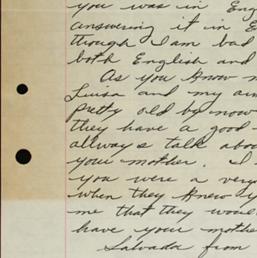 you was in Eng
answering it in E
though I am bad
both English and
As you know m
Luisa and my aun
pretty old by now
they have a good
allways talk abou
your mother. I
you were a very
when they knew y
me that they woul
have your mothe
Salvada from